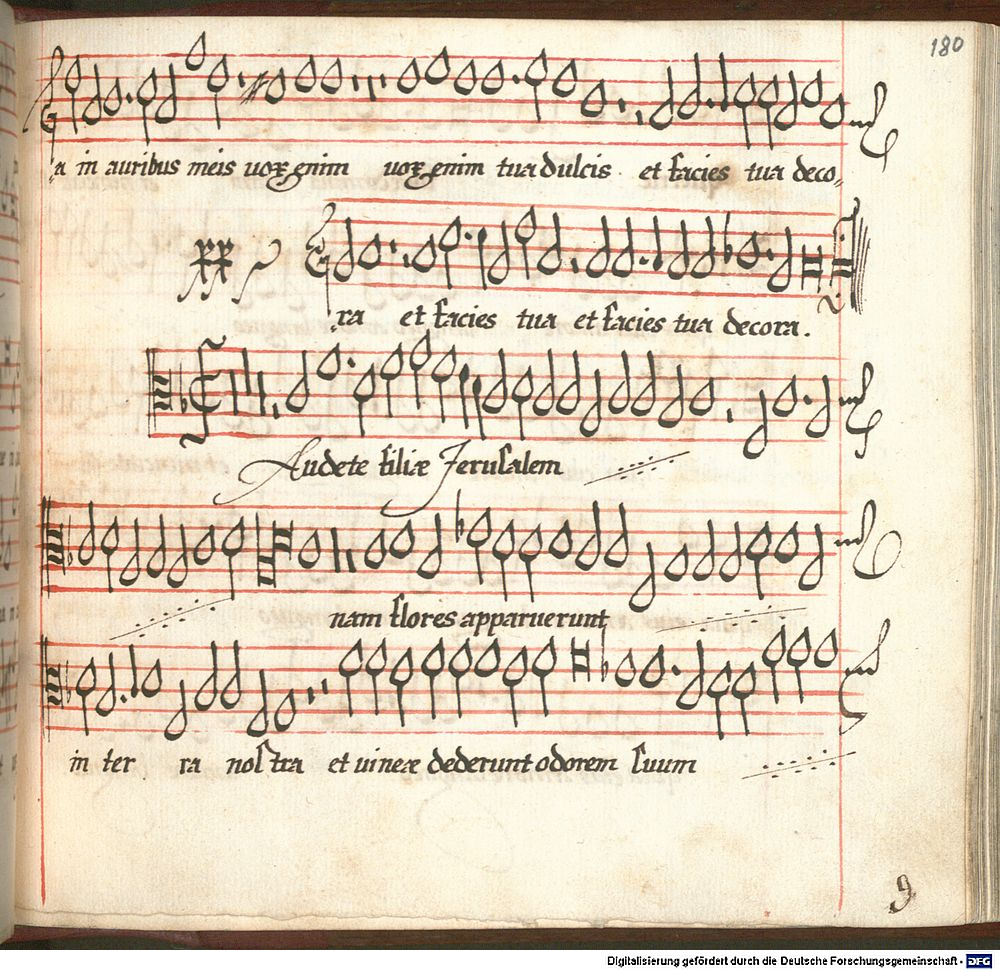 180
a in auribus meis uox enim uox enim tua dulcis . et facies tua deco-
ra et facies tua et facies tua decora .
Audete filiæ Jerusalem
nam flores apparuerunt
in ter ra nostra et uineæ dederunt odorem suum
9
Digitalisierung gefördert durch die Deutsche Forschungsgemeinschaft - DFG